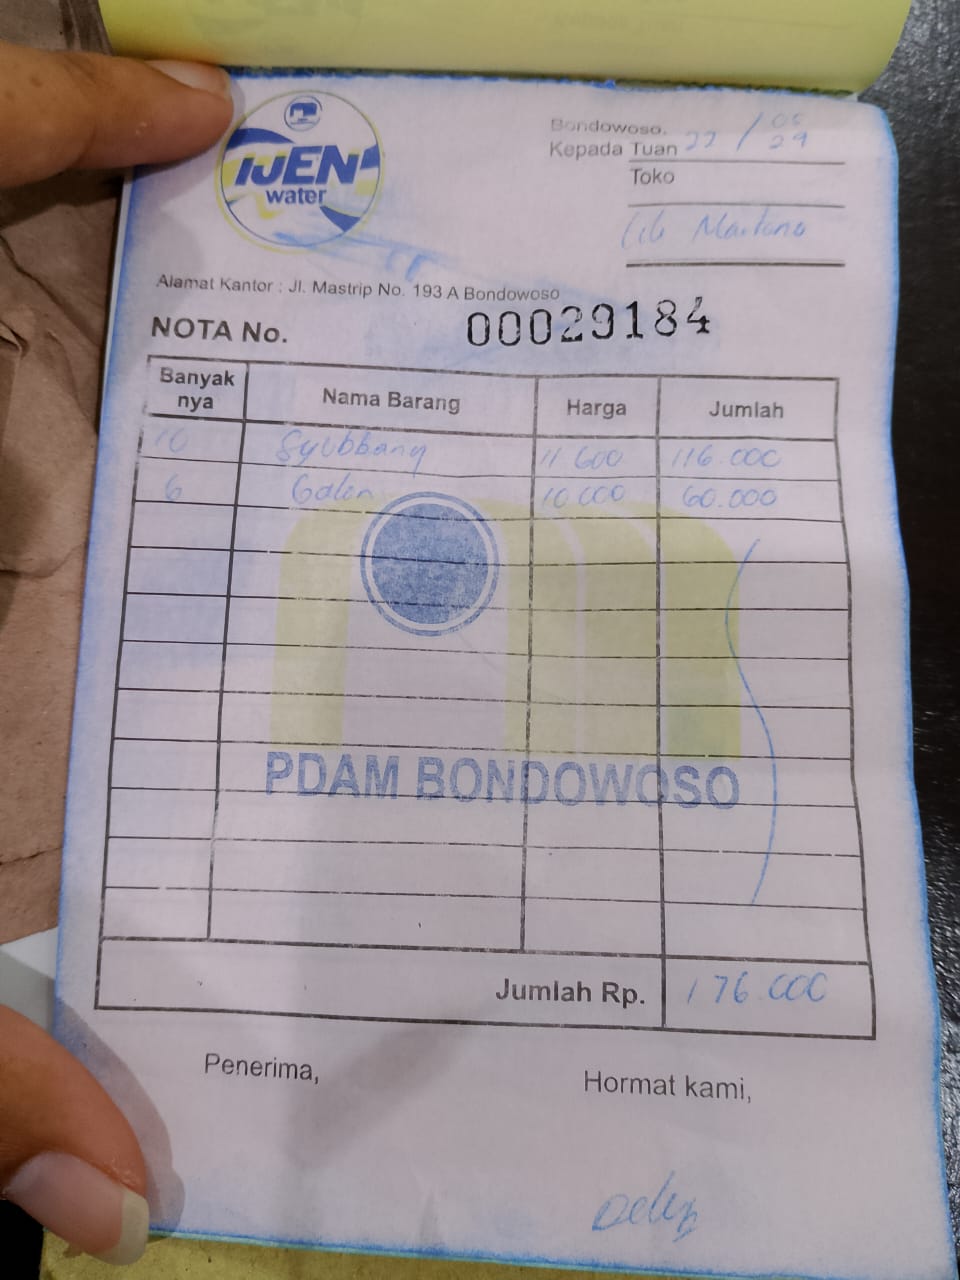 IJEN
water
Bondowoso, 22 / 05
Kepada Tuan 24
Toko
Alamat Kantor : Jl. Mastrip No. 193 A Bondowoso
NOTA No. 00029184
Banyak nya Nama Barang Harga Jumlah
10 Syubbang 11 600 116.000
6 Galon 10 000 60.000
PDAM BONDOWOSO
Jumlah Rp. 176.000
Penerima, Hormat kami,